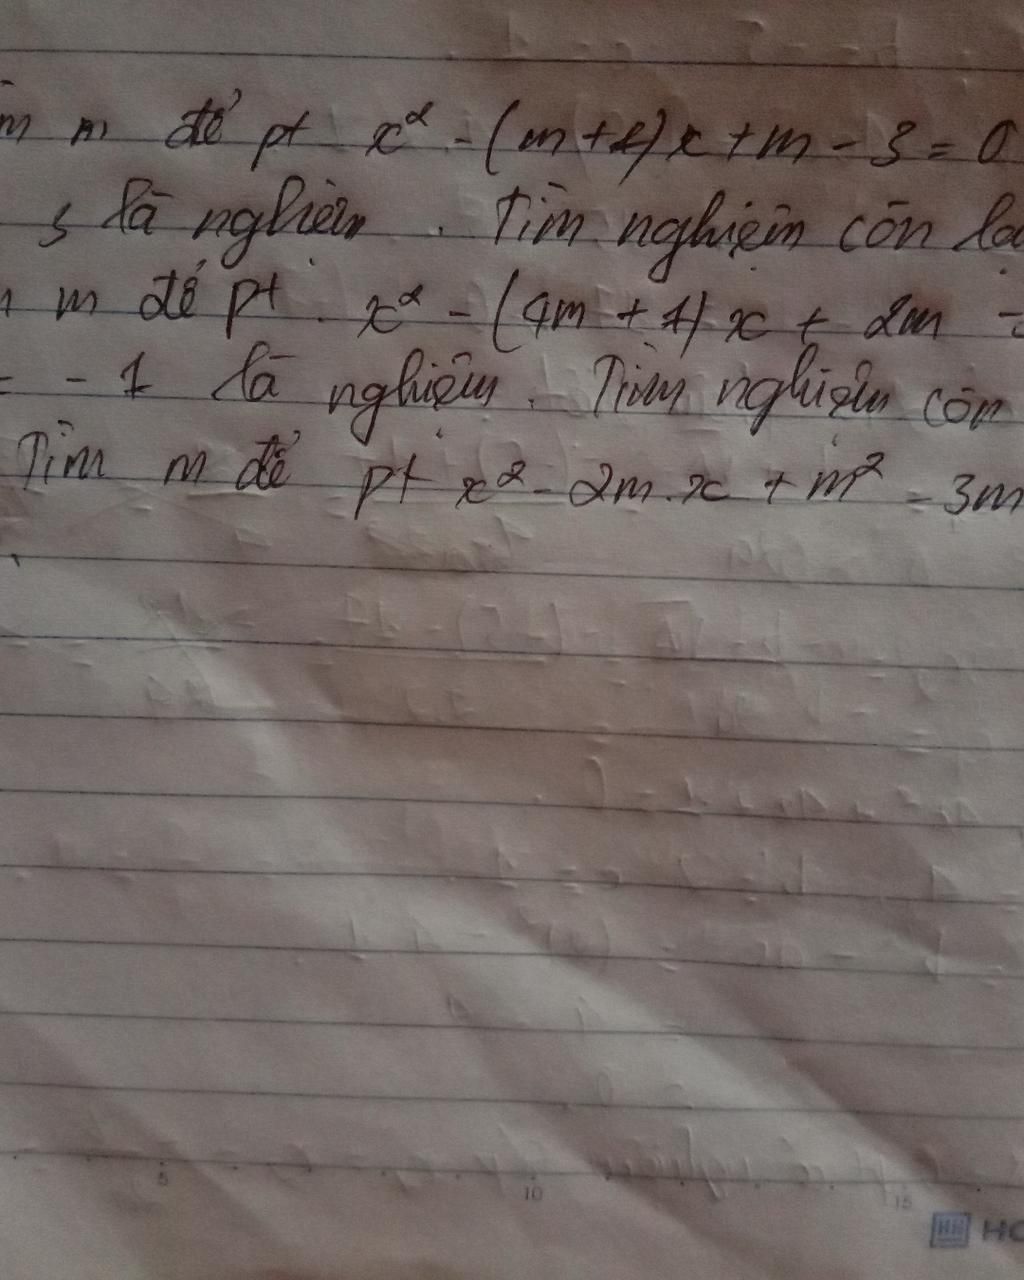 m m để pt x² - (m + 1)x + m - 3 = 0
là nghiệm. Tìm nghiệm còn lạ
m để pt x² - (4m + 1)x + 2m
= -1 là nghiệm. Tìm nghiệm còn
Tìm m để pt x² - 2m.x + m² - 3m
5 10 15
HH HO